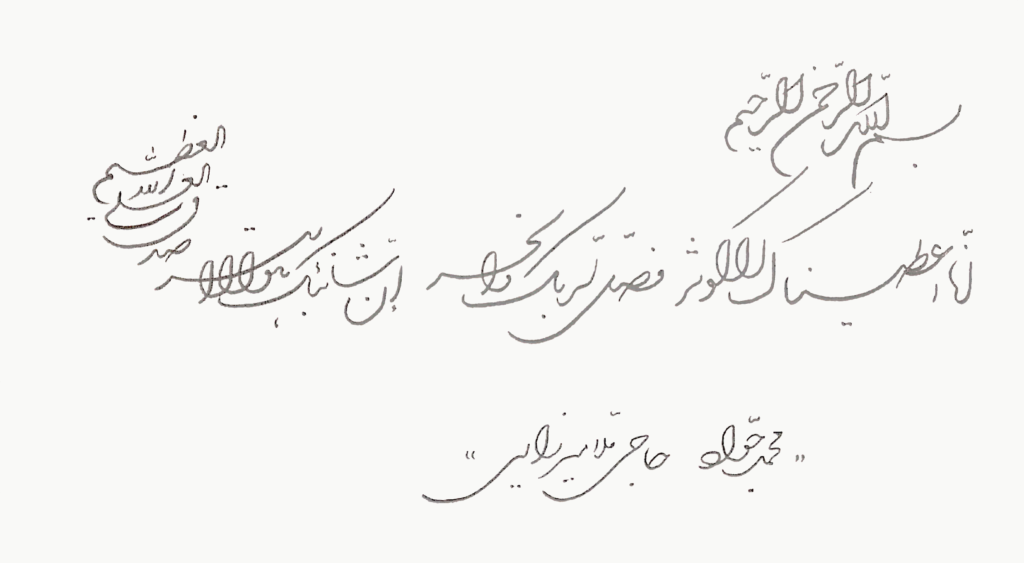 بسم الله الرحمن الرحیم
انا اعطیناک الکوثر فصل لربک وانحر ان شانئک هو الابتر
صدق الله العلی العظیم
"محمد جواد حاجی ملامیرزایی"